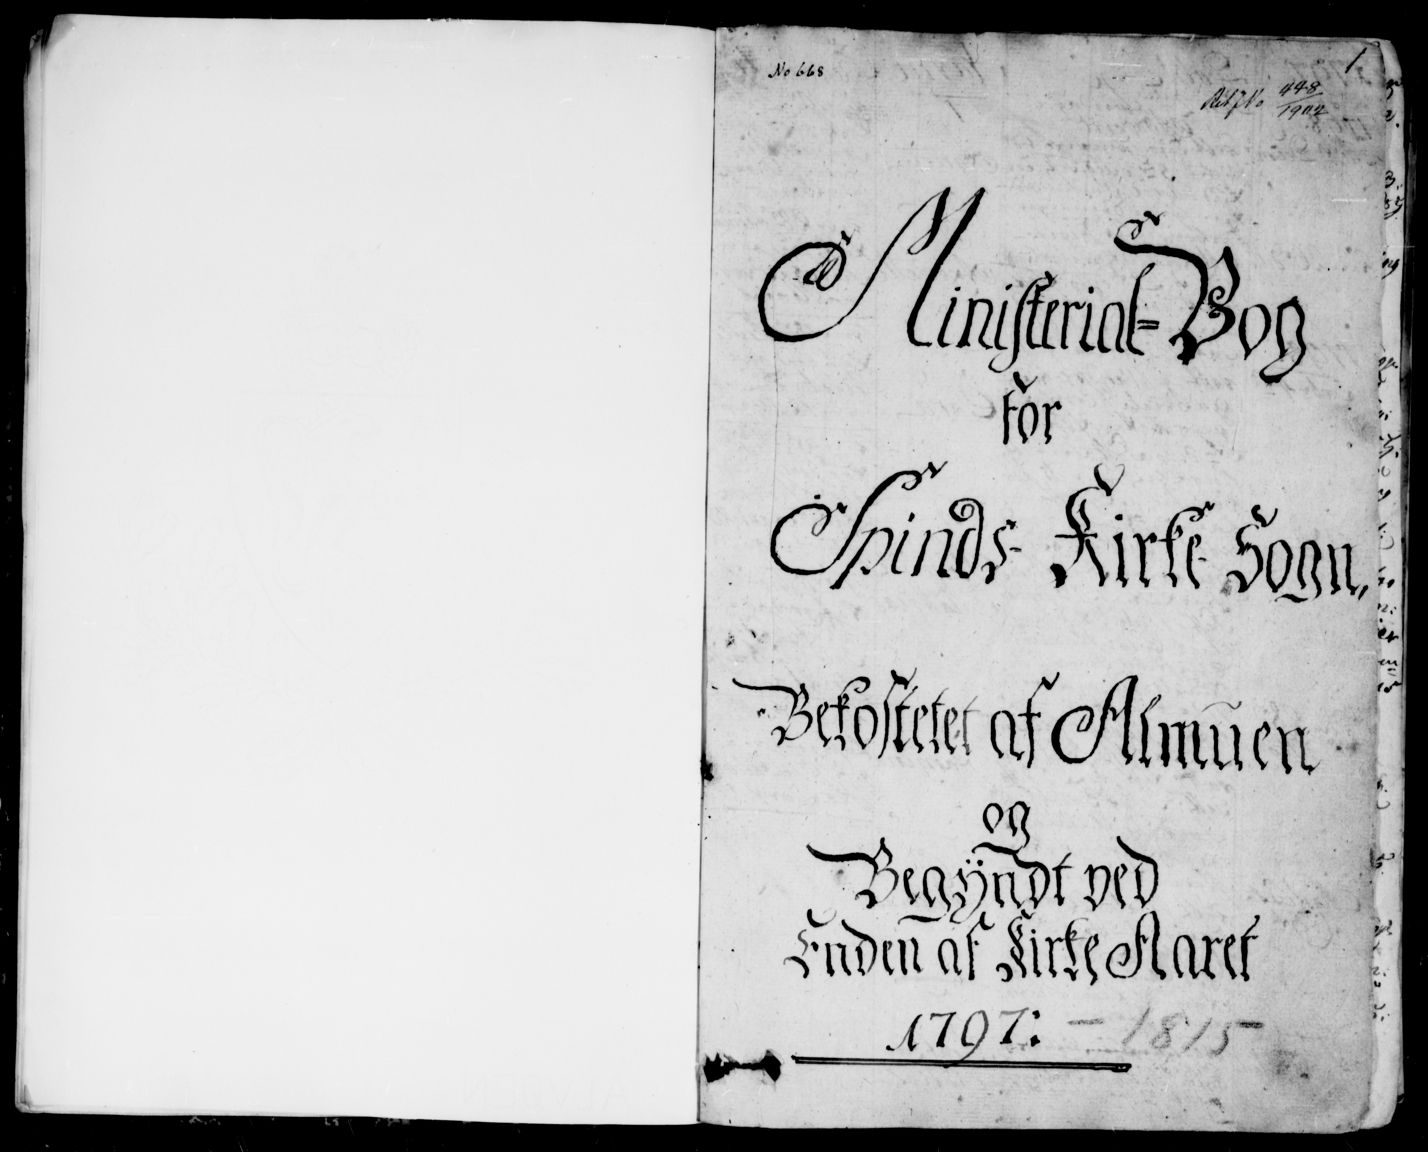 1
No 668
448
1902
Ministerial=Bog
for
Spinds Kirke Sogn,
Bekostetet af Almuen
og
Begÿndt ved
Enden af Kirke Aaret
1797: – 1815